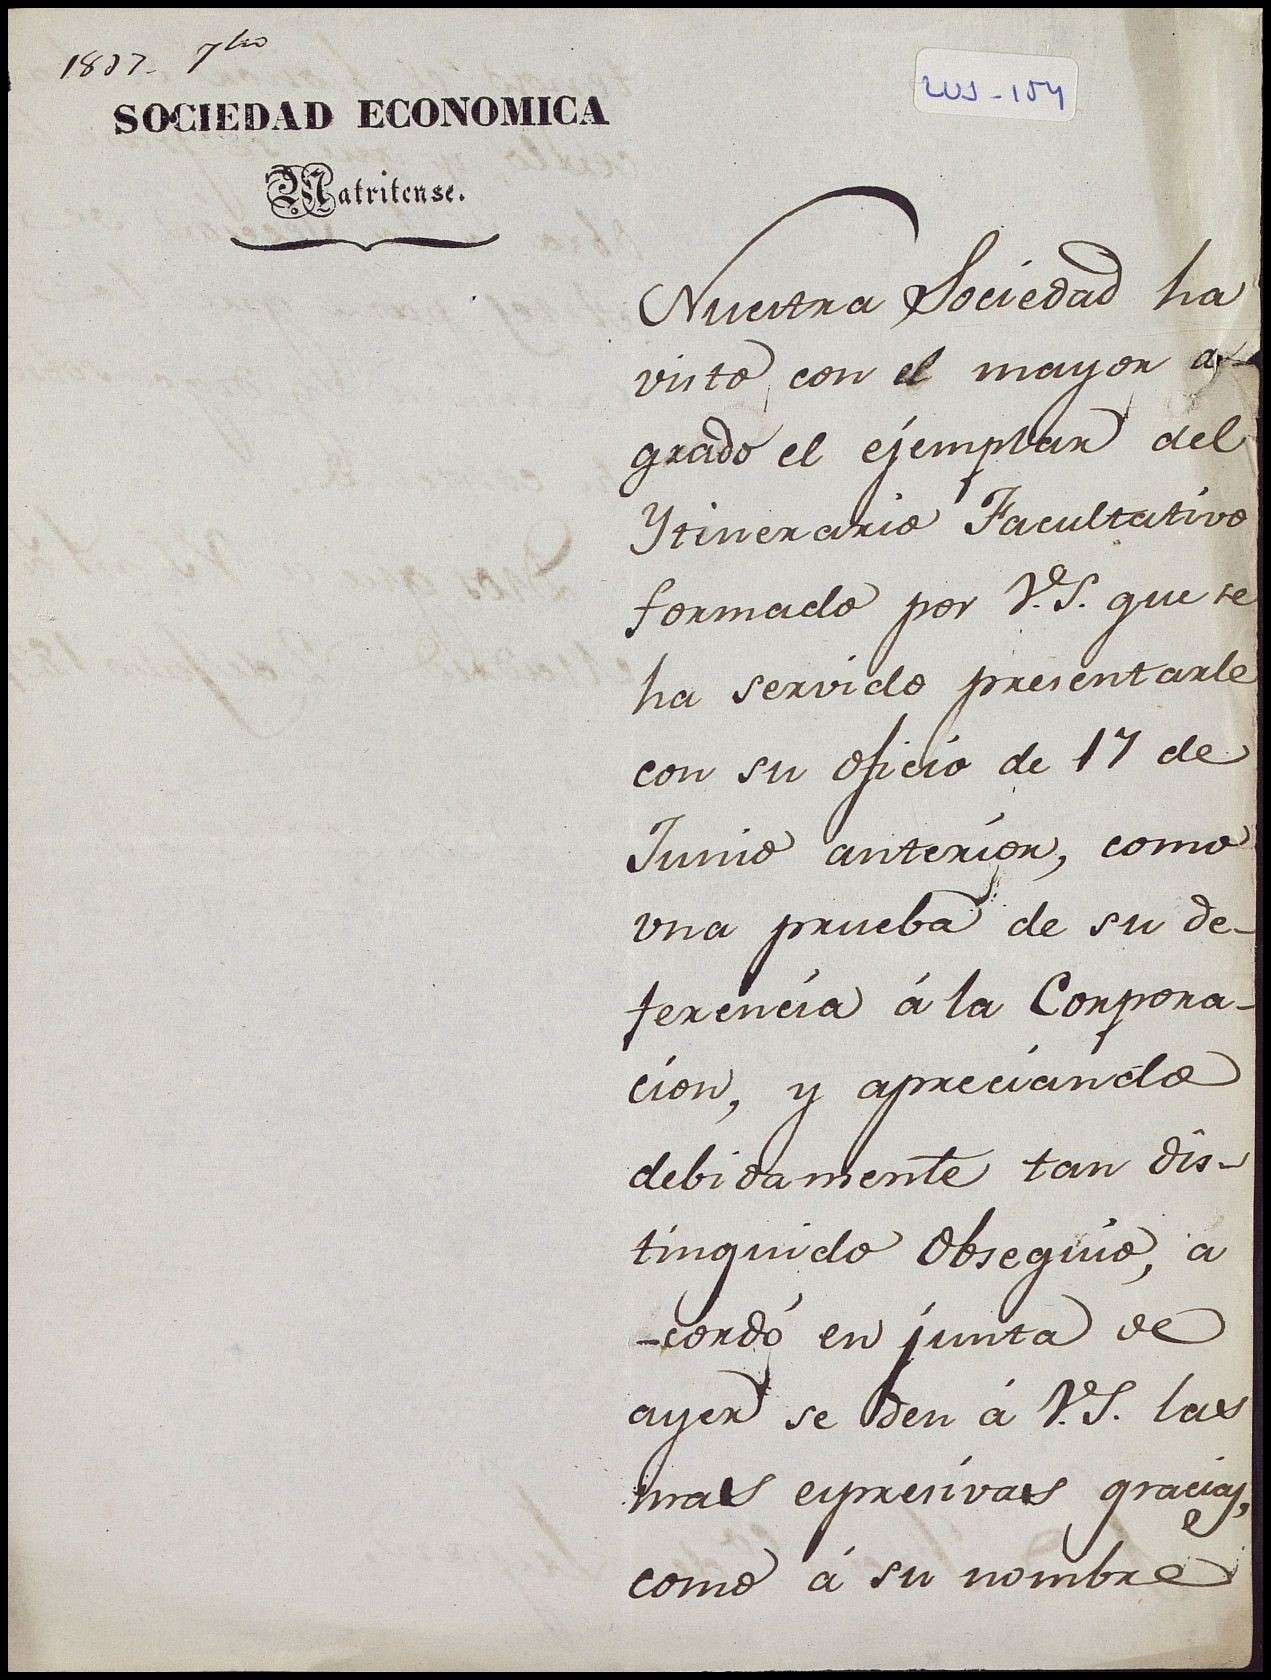 1837- 7bro
LUS-154
SOCIEDAD ECONOMICA
Matritense.
Nuestra Sociedad ha
visto con el mayor a-
grado el ejemplar del
Ytinerario Facultativo
formado por V.S. que se
ha servido presentarle
con su oficio de 17 de
Junio anterior, como
una prueba de su de-
ferencia á la Corpora-
cion, y apreciando
debidamente tan dis-
tinguido obsequio, a
-cordó en junta de
ayer se den á V.S. las
mas espresivas gracias,
como á su nombre